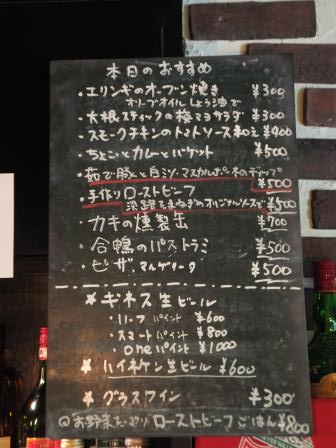 本日のおすすめ
・エリンギのオーブン焼き ¥300
オリーブオイルしょう油で
・大根スティックの梅マヨサラダ ¥300
・スモークチキンのトマトソース和え ¥400
・ちょこっとカムーとバゲット ¥500
・茹で豚と白ミソ・マスカルポーネのディップ ¥500
・手作りローストビーフ
淡路玉ねぎのオリジナルソースで ¥500
・カキの燻製缶 ¥700
・合鴨のパストラミ ¥500
・ピザ.マルゲリータ ¥500
★ ギネス生ビール
・ハーフパイント ¥600
・スマートパイント ¥800
・oneパイント ¥1000
★ ハイネケン生ビール ¥600
★ グラスワイン ¥300
@お野菜たっぷりローストビーフごはん ¥800